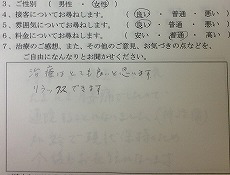 3. ご性別 ( 男性 ・ 女性 )
4. 接客についてお尋ねします。 ( 良い ・ 普通 ・ 悪い )
5. 雰囲気についてお尋ねします。 ( 良い ・ 普通 ・ 悪い )
6. 料金についてお尋ねします。 ( 安い ・ 普通 ・ 高い )
7. 治療のご感想、また、その他のご意見、お気づきの点などを、
ご自由になんなりとお聞かせください。
治療はとても良いと思います
リラックスできます